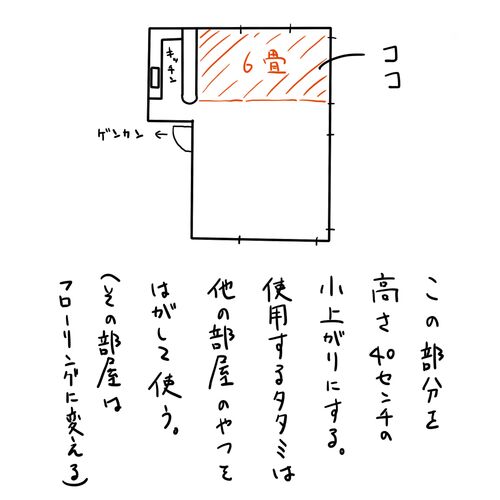 キッチン
6畳
ココ
ゲンカン ←
この部分を
高さ40センチの
小上がりにする。
使用するタタミは
他の部屋のやつを
はがして使う。
(その部屋は
フローリングに変える)